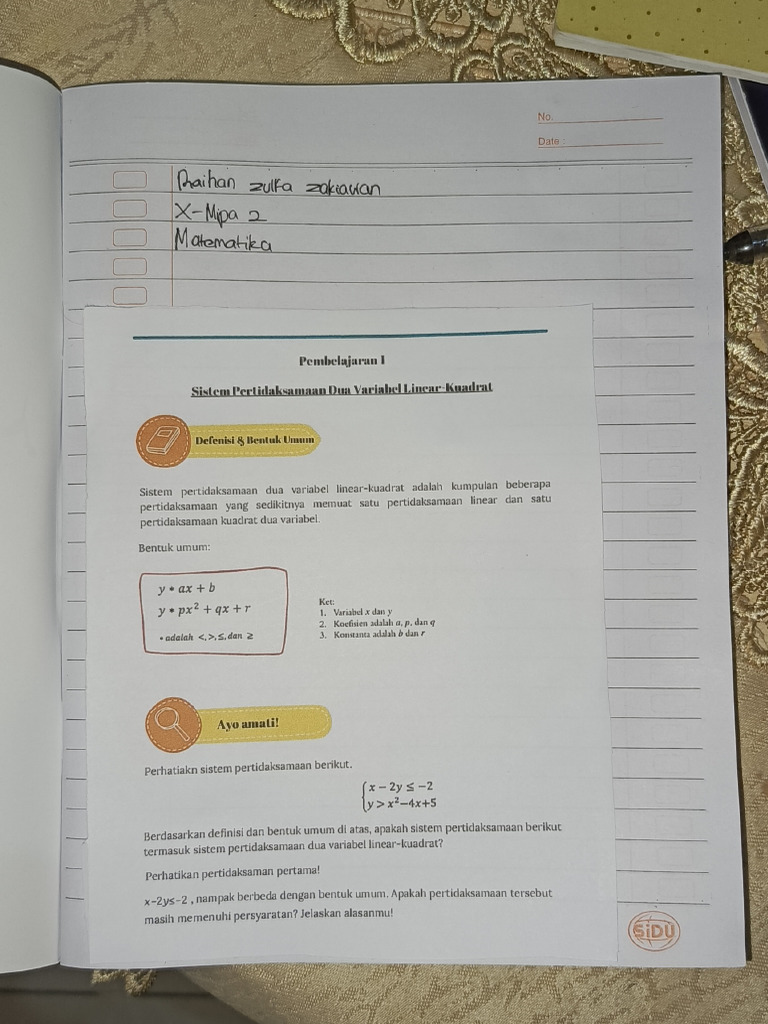 No.
Date :
Raihan zulfa zakiawan
X-Mipa 2
Matematika
Pembelajaran 1
Sistem Pertidaksamaan Dua Variabel Linear-Kuadrat
Defenisi & Bentuk Umum
Sistem pertidaksamaan dua variabel linear-kuadrat adalah kumpulan beberapa
pertidaksamaan yang sedikitnya memuat satu pertidaksamaan linear dan satu
pertidaksamaan kuadrat dua variabel.
Bentuk umum:
y • ax + b
y • px² + qx + r
• adalah <,>,≤,dan ≥
Ket:
1. Variabel x dan y
2. Koefisien adalah a, p, dan q
3. Konstanta adalah b dan r
Ayo amati!
Perhatiakn sistem pertidaksamaan berikut.
{x − 2y ≤ −2
y > x²−4x+5
Berdasarkan definisi dan bentuk umum di atas, apakah sistem pertidaksamaan berikut
termasuk sistem pertidaksamaan dua variabel linear-kuadrat?
Perhatikan pertidaksaman pertama!
x−2y≤−2 , nampak berbeda dengan bentuk umum. Apakah pertidaksamaan tersebut
masih memenuhi persyaratan? Jelaskan alasanmu!
SiDU